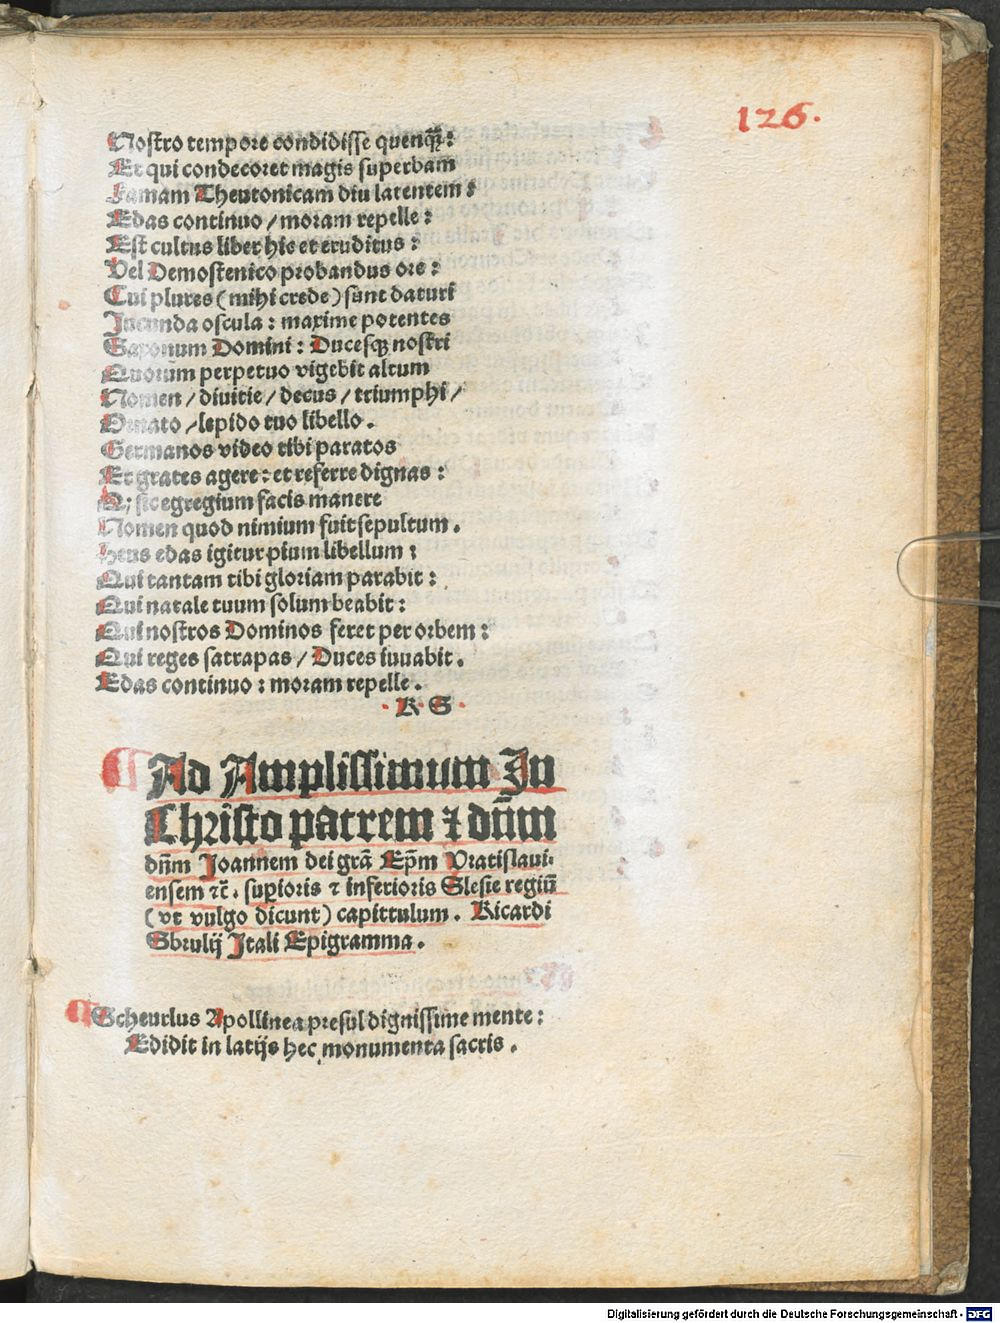 126.
Nostro tempore condidisse quenqꝫ:
Et qui condecoret magis superbam
Famam Theutonicam diu latentem:
Edas continuo / moram repelle:
Est cultus liber hic et eruditus:
Vel Demostenico probandus ore:
Cui plures (mihi crede) sunt daturi
Jucunda oscula: maxime potentes
Saxonum Domini: Ducesqꝫ nostri
Quorum perpetuo vigebit altum
Nomen / divitie / decus / triumphi /
Ornato / lepido tuo libello.
Germanos video tibi paratos
Et grates agere: et referre dignas:
Qꝫ sic egregium facis manere
Nomen quod nimium fuit sepultum.
Heus edas igitur pium libellum:
Qui tantam tibi gloriam parabit:
Qui natale tuum solum beabit:
Qui nostros Dominos feret per orbem:
Qui reges satrapas / Duces iuuabit.
Edas continuo: moram repelle.
·K S·
¶ Ad Amplissimum In
Christo patrem ⁊ dn̄m
dn̄m Joannem dei gr̄a Ep̄m Vratislaui-
ensem ⁊c̄. suꝑioris ⁊ inferioris Slesie regiū
(vt vulgo dicunt) capittulum. Ricardi
Sbrulij Itali Epigramma.
¶ Scheurlus Apollinea presul dignissime mente:
Edidit in latijs hec monumenta sacris.
Digitalisierung gefördert durch die Deutsche Forschungsgemeinschaft - DFG